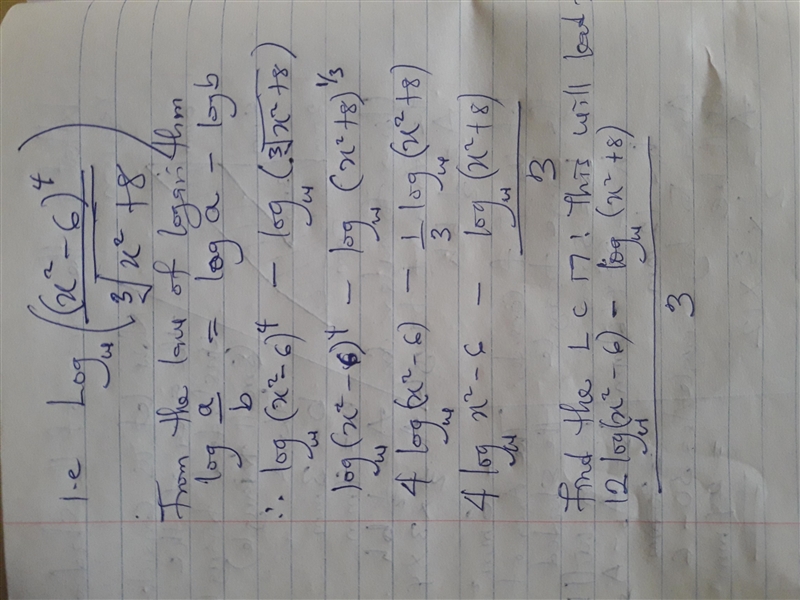 i.e Log_w((x²-6)⁴/∛x²+8)
From the law of logarithm
log a/b = log a - log b
∴ log_w(x²-6)⁴ - log_w(∛x²+8)
log_w(x²-6)⁴ - log_w(x²+8)^1/3
4 log_w(x²-6) - 1/3 log_w(x²+8)
4 log_w x²-6 - log_w(x²+8)/3
find the LCM! This will
12 log_w(x²-6) - log_w(x²+8)
3